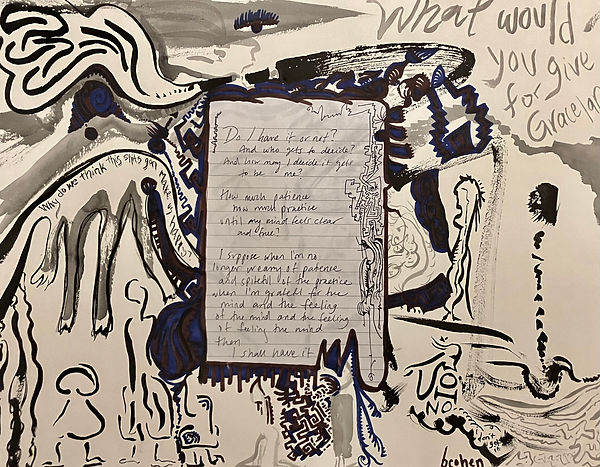 What would
you give
for
Graceland
Do I have it or not?
And who gets to decide?
And how may I decide it gets
to be me?
How much patience
how much practice
until my mind feels clear
and free?
I suppose when I'm no
longer weary of patience
and spiteful of the practice
when I'm grateful for the
mind and the feeling
of the mind and the feeling
of feeling the mind
then
I shall have it
Why do we think this
bcohen